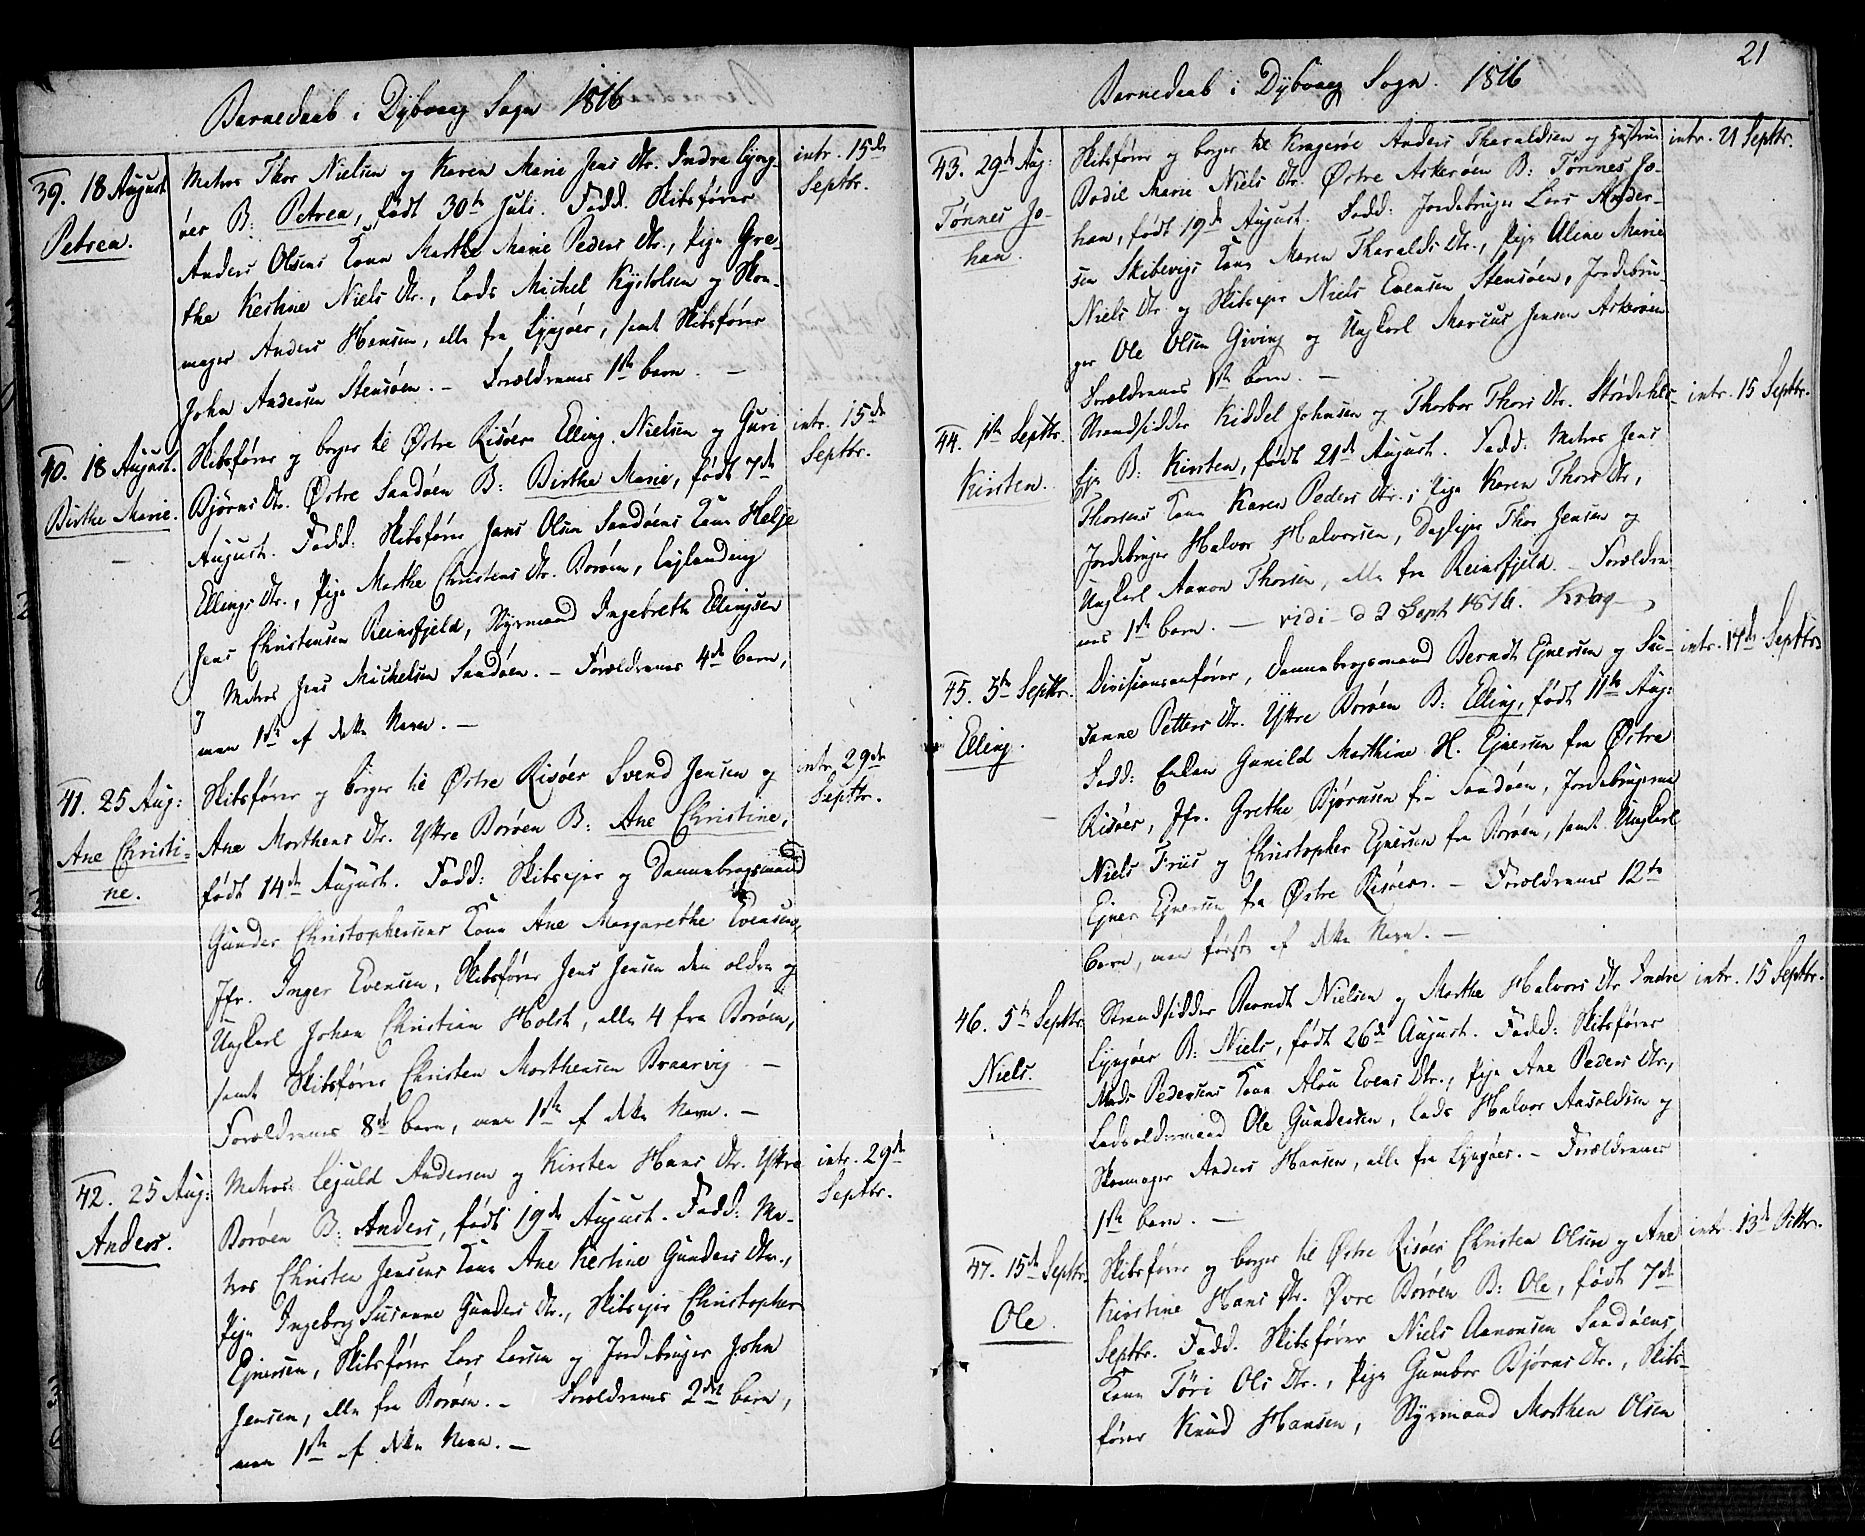 Barnedaab i Dybvaag Sogn 1816
39. 18 August
Petrea.
Matros Thor Nielsen og Karen Marie Jens Dtr. Indre Lyng-
öer B: Petrea, født 30te Juli. Fadd. Skibsfører
Anders Olsens Kone Marthe Marie Peders Dtr., Pige Gre-
the Kirstine Niels Dtr., Lods Michel Kystolsen og Skoe-
mager Anders Hansen, alle fra Lyngöer, samt Skibsfører
John Andersen Stensöen. – Forældrenes 1ste barn. –
intr. 15de
Septbr.
40. 18 August.
Birthe Marie.
Skibsfører og borger til Östre Risöer Elling Nielsen og Guri
Bjørns Dtr. Östre Sandöen B: Birthe Marie, født 7de
August. Fadd: Skibsfører Jens Olsen Sandöens Kone Helje
Ellings Dtr., Pige Marthe Christens Dtr. Boröen,
Jens Christensen Reinsfjeld, Styrmand Ingebreth Ellingsen
og Matros Jens Michelsen Sandöen. – Forældrenes 4de barn,
men 1ste af dette Navn. –
intr. 15de
Septbr.
41. 25 Aug:
Ane Christi-
ne.
Skibsfører og borger til Östre Risöer Svend Jensen og
Ane Morthens Dtr. Yttre Boröen B: Ane Christine,
født 14de August. Fadd: Skibsejer og Dannebrogsmand
Gunder Christophersens Kone Ane Margarethe Evensen,
Jfr. Inger Evensen, Skibsfører Jens Jensen den ældre og
Ungkarl Johan Christian Holst, alle 4 fra Boröen,
samt Skibsfører Christen Morthensen Braarvig –
Forældrenes 8de barn, men 1ste af dette Navn. –
intr. 29de
Septbr.
42. 25 Aug:
Anders.
Matros Lejuld Andersen og Kirsten Hans Dtr. Yttre
Boröen B: Anders, født 19de August. Fadd: Ma-
tros Christen Jensens Kone Ane Kirstine Gunders Dtr.,
Pige Ingeborg Susanne Gunders Dtr., Skibsejer Christopher
Ejnersen, Skibsfører Lars Larsen og Jordebruger John
Jensen, alle fra Boröen. – Forældrenes 2det barn,
men 1ste af dette Navn. –
intr. 29de
Septbr.
21
Barnedaab i Dybvaag Sogn. 1816
43. 29de Aug:
Tønnes Jo-
han.
Skibsfører og borger til Krageröe Anders Tharaldsen og Hustrue
Bodil Marie Niels Dtr. Östre Askeröen B: Tønnes Jo-
han, født 19de August. Fadd: Jordebruger Lars Ander-
sen Skibevigs Kone Maren Tharalds Dtr., Pige Aline Marie
Niels Dtr. og Skibsejer Niels Evensen Stensöen, Jordebru-
ger Ole Olsen Giving og Ungkarl Marcus Jensen Askeröen
Forældrenes 1ste barn. –
intr. 21 Septbr.
44. 1ste Septbr.
Kirsten.
Strandsidder Kiddel Johnsen og Thorbor Thors Dtr.
Eje B: Kirsten, født 21de August. Fadd: Matros Jens
Thorsens Kone Karen Peders Dtr., Pige Karen Thors Dtr.,
Jordebruger Halvor Halvorsen, Thor Jensen og
Ungkarl Aanon Thorsen, alle fra Reinsfjeld. – Forældre-
nes 1ste barn. – vidi d 2 Sept 1816. Krag
intr. 15 Septbr.
45. 5te Septbr.
Elling.
Divisionsanfører, Dannebrogsmand Berndt Ejnersen og Su-
sanne Petters Dtr. Yttre Boröen B: Elling, født 11te Aug:
Fadd: Enken Gunild Marthine H. Ejnersen fra Östre
Risöer, Jfr. Grethe Bjørnsen fra Sandöen, Jordebrugerne
Niels Friis og Christopher Ejnersen fra Boröen, samt Ungkarl
Ejner Ejnersen fra Östre Risöer. – Forældrenes 12te
barn, men første af dette Navn. –
intr. 17de Septbr.
46. 5te Septbr
Niels.
Strandsidder Berndt Nielsen og Marthe Halvors Dtr Indre
Lyngöer B: Niels, født 26de August. Fadd: Skibsfører
Mads Pedersens Kone Alou Evens Dtr., Pige Ane Peders Dtr.,
Lodsoldermand Ole Gundersen, Lods Halvor Aasoldsen og
Skoemager Anders Hansen, alle fra Lyngöer. – Forældrenes
1ste barn. –
intr. 15 Septbr.
47. 15de Septbr.
Ole.
Skibsfører og borger til Östre Risöer Christen Olsen og Ane
Kirstine Hans Dtr. Övre Boröen B: Ole, født 7de
Septbr. Fadd. Skibsfører Niels Aanonsen Sandöens
Kone Töri Ols Dtr., Pige Gumbor Bjørns Dtr., Skibs-
fører Knud Hansen, Styrmand Morthen Olsen
intr. 13de Octbr.